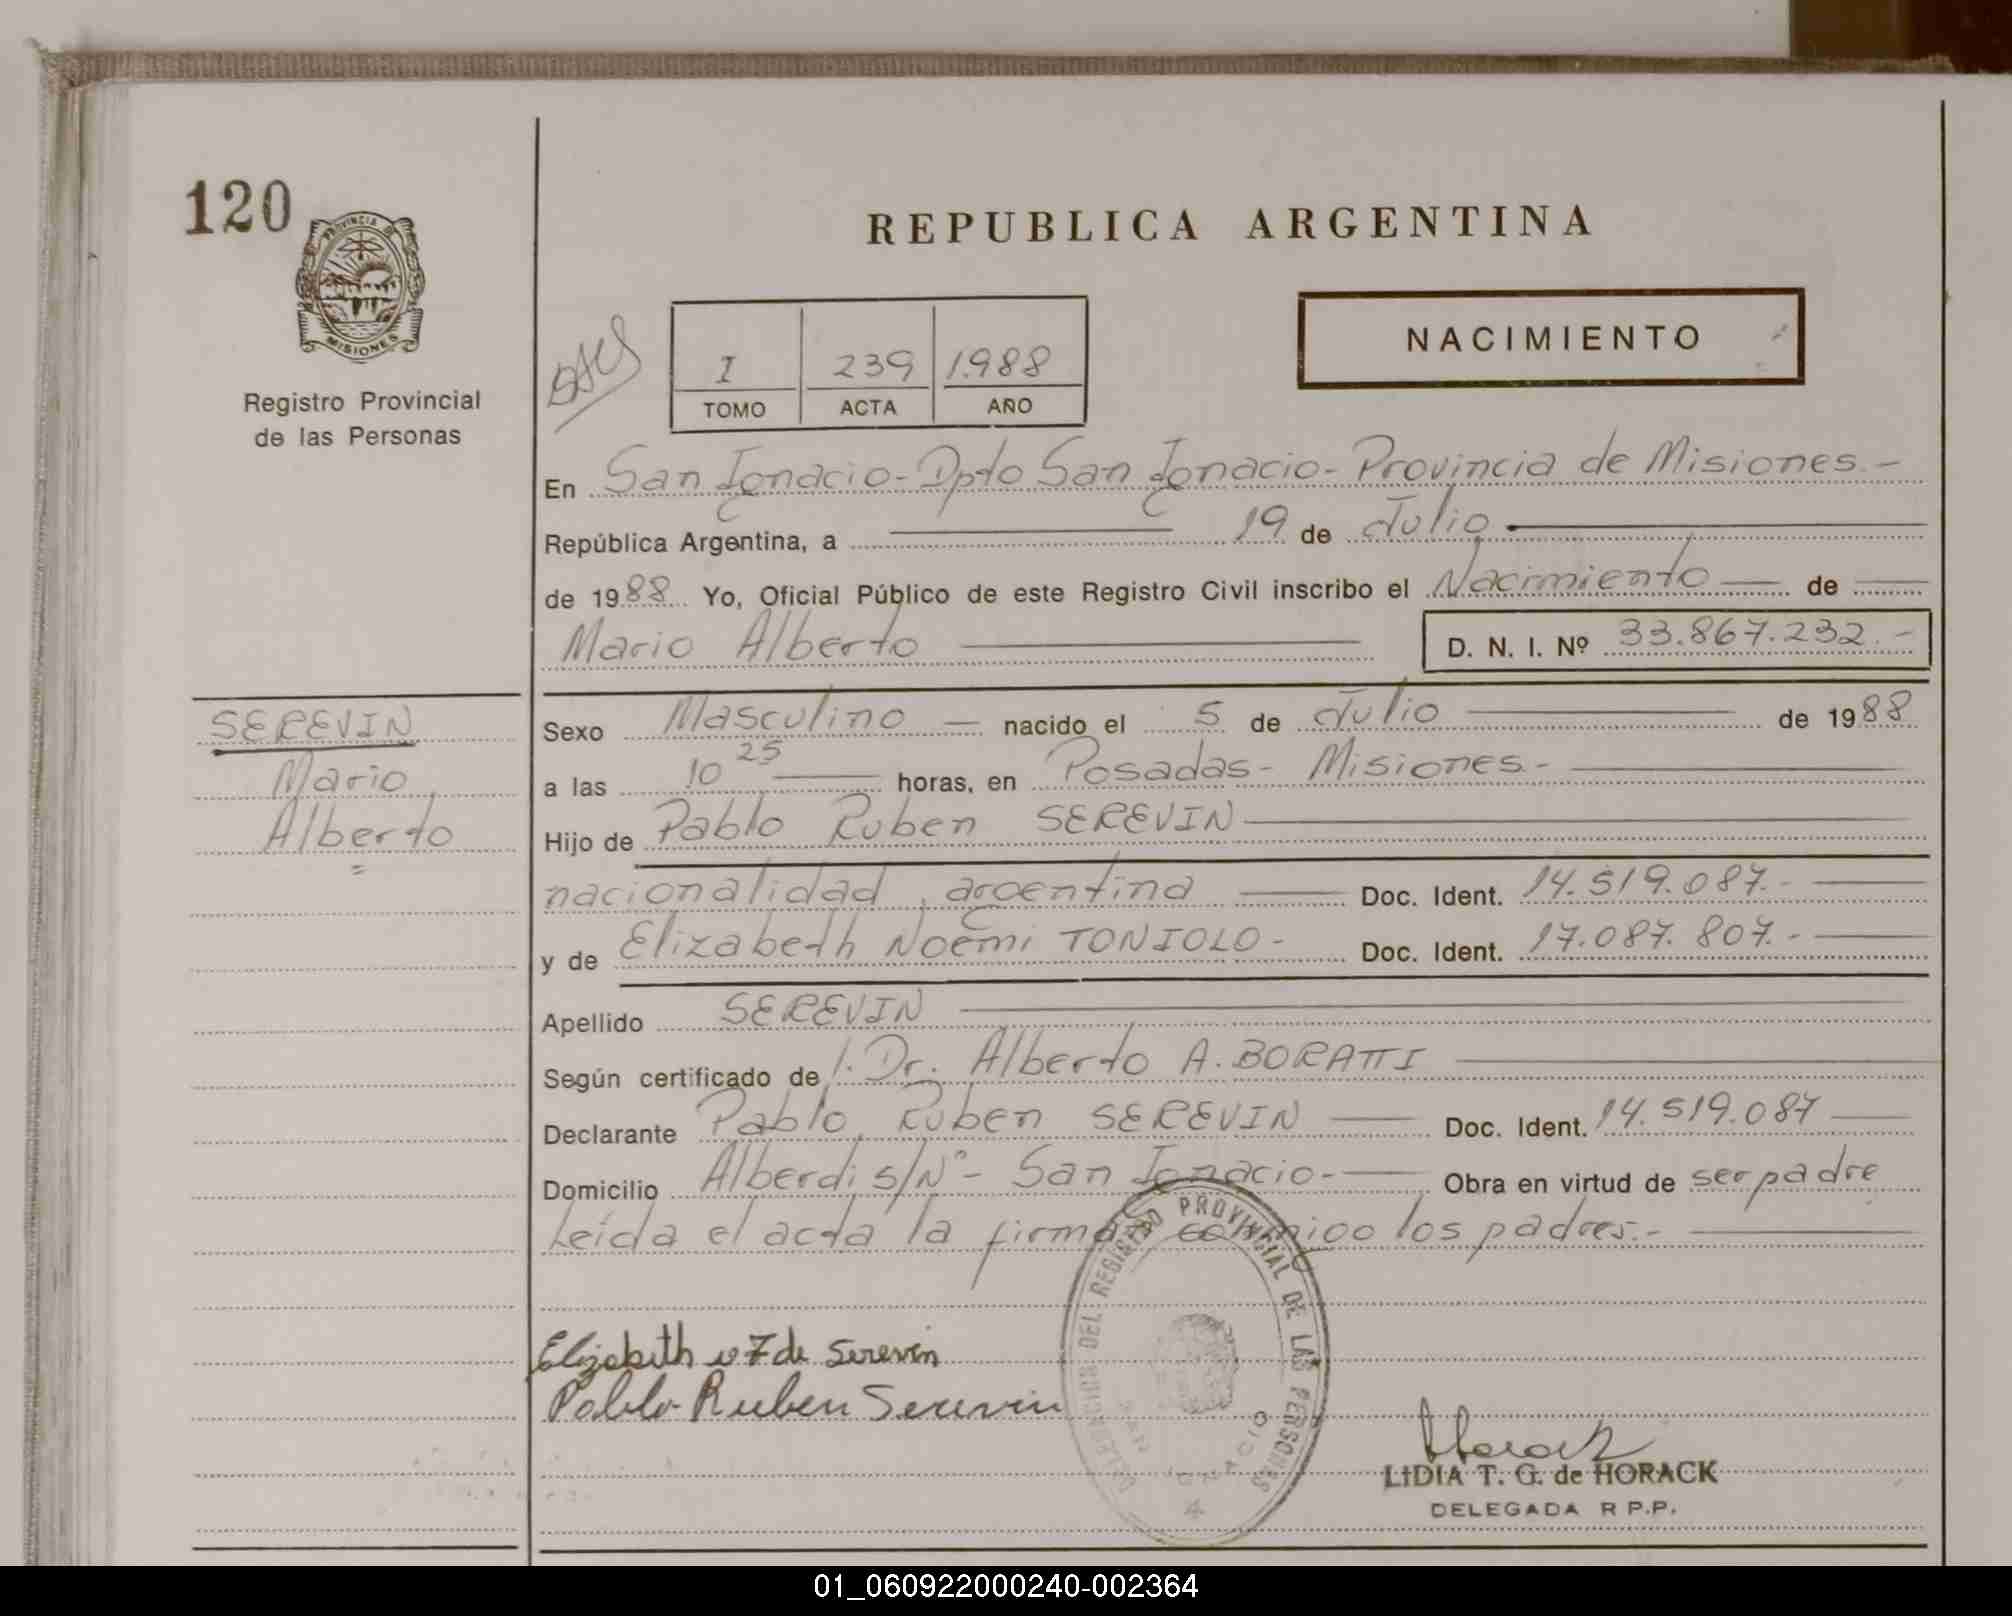 120
PROVINCIA DE
MISIONES
Registro Provincial
de las Personas
REPUBLICA ARGENTINA
I 239 1.988
TOMO ACTA AÑO
NACIMIENTO
En San Ignacio - Dpto San Ignacio - Provincia de Misiones.-
República Argentina, a 19 de Julio
de 1988 Yo, Oficial Público de este Registro Civil inscribo el Nacimiento de
Mario Alberto D. N. I. Nº 33.867.232.-
SEREVIN
Mario
Alberto
Sexo Masculino nacido el 5 de Julio de 1988
a las 10 25 horas, en Posadas - Misiones.-
Hijo de Pablo Ruben SEREVIN
nacionalidad argentina Doc. Ident. 14.519.087.-
y de Elizabeth Noemi TONIOLO - Doc. Ident. 17.087.807.-
Apellido SEREVIN
Según certificado de l. Dr. Alberto A. BORATTI
Declarante Pablo Ruben SEREVIN Doc. Ident. 14.519.087
Domicilio Alberdi s/Nº - San Ignacio - Obra en virtud de ser padre
Leída el acta la firman conmigo los padres.-
DELEGACION DEL REGISTRO PROVINCIAL DE LAS PERSONAS
SAN IGNACIO
Elizabeth de Serevin
Pablo Ruben Serevin
Horack
LIDIA T. G. de HORACK
DELEGADA R P.P.
01_060922000240-002364